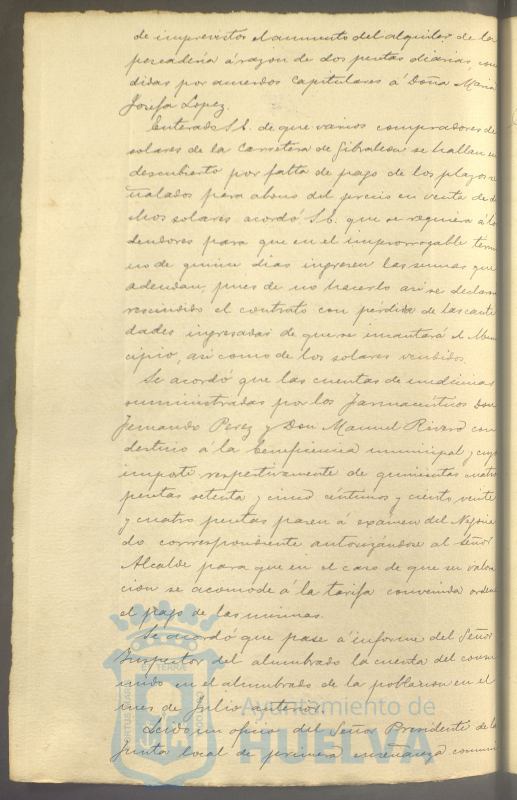 de imprevistos el aumento del alquiler de la
pescadería á razon de dos pesetas diarias, con
didas por acuerdos Capitulares á Doña Maria
Josefa Lopez.
Enterado S.E. de que varios compradores de
solares de la Carretera de Gibraleon se hallan en
descubierto por falta de pago de los plazos se
ñalados para abono del precio en venta de di
chos solares acordó S.E. que se requiera á los
deudores para que en el improrrogable térmi
no de quince dias ingresen las sumas que
adeudan, pues de no hacerlo asi se declarará
rescindido el contrato con pérdida de las canti
dades ingresadas de que se incautará el Muni
cipio, asi como de los solares vendidos.
Se acordó que las cuentas de medicinas
suministradas por los Farmacéuticos Don
Fernando Perez y Don Manuel Rivero con
destino á la beneficencia municipal y cuyo
importe respectivamente de quinientas cuatro
pesetas setenta y cinco céntimos y ciento veinte
y cuatro pesetas pasen á exámen del Negocia
do correspondiente autorizándose al Señor
Alcalde para que en el caso de que su valora
cion se acomode á la tarifa convenida ordene
el pago de las mismas.
Se acordó que pase á informe del Señor
Inspector del alumbrado la cuenta del consu
mido en el alumbrado de la poblacion en el
mes de Julio anterior.
Leido un oficio del Señor Presidente de la
Junta local de primera enseñanza comuni
Ayuntamiento de
HUELVA